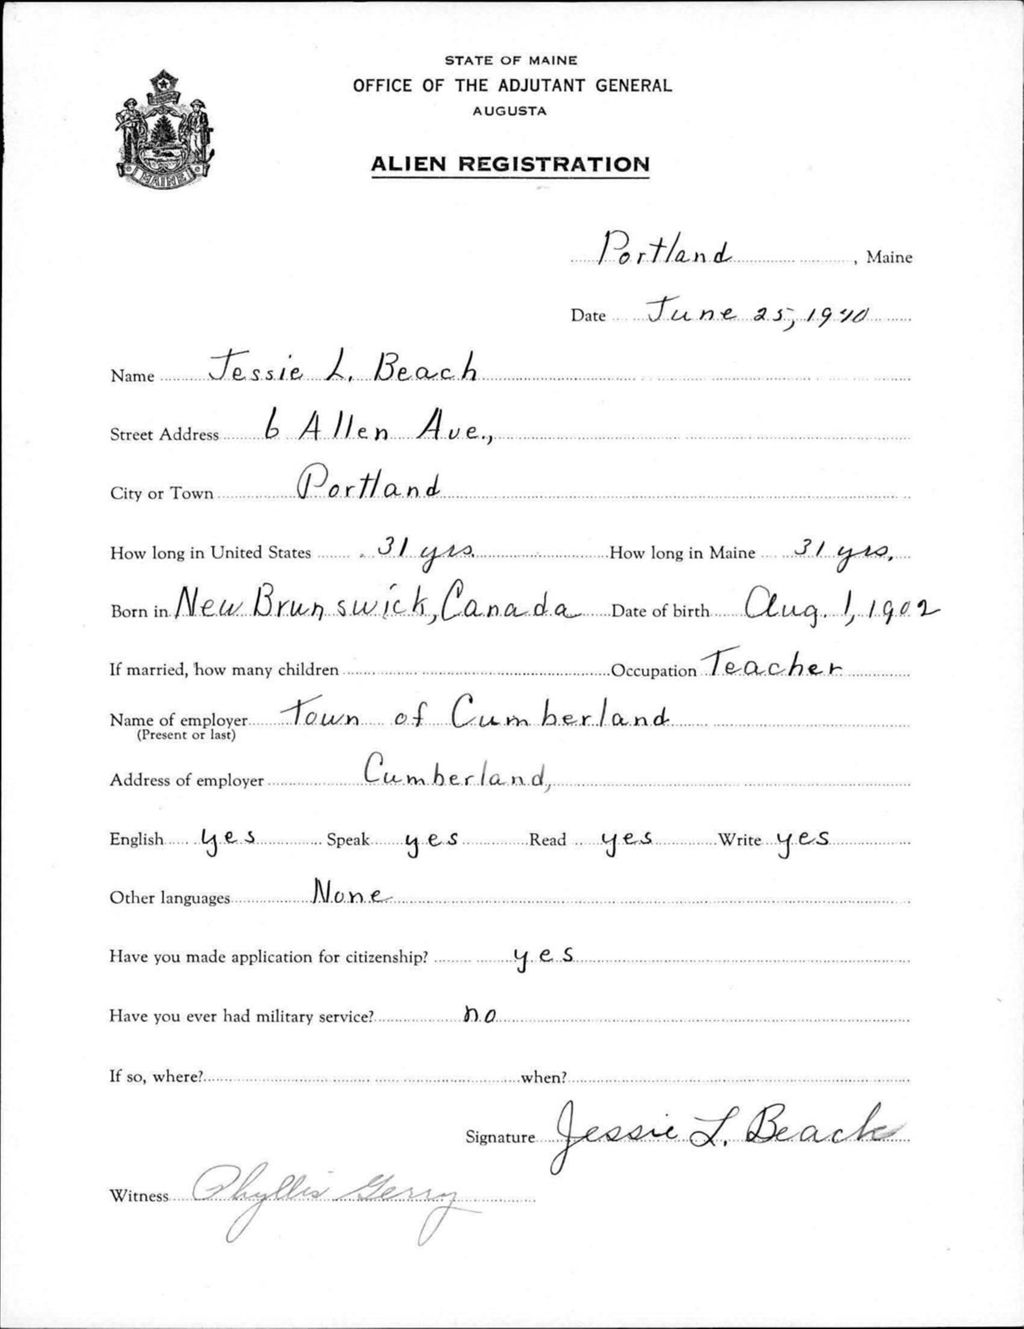 STATE OF MAINE
OFFICE OF THE ADJUTANT GENERAL
AUGUSTA
ALIEN REGISTRATION
MAINE
Portland, Maine
Date June 25, 1940
Name Jessie L. Beach
Street Address 6 Allen Ave.,
City or Town Portland
How long in United States 31 yrs. How long in Maine 31 yrs.
Born in New Brunswick, Canada Date of birth Aug. 1, 1902
If married, how many children Occupation Teacher
Name of employer Town of Cumberland
(Present or last)
Address of employer Cumberland,
English yes Speak yes Read yes Write yes
Other languages None
Have you made application for citizenship? yes
Have you ever had military service? no
If so, where? when?
Signature Jessie L. Beach
Witness Phyllis Gerry